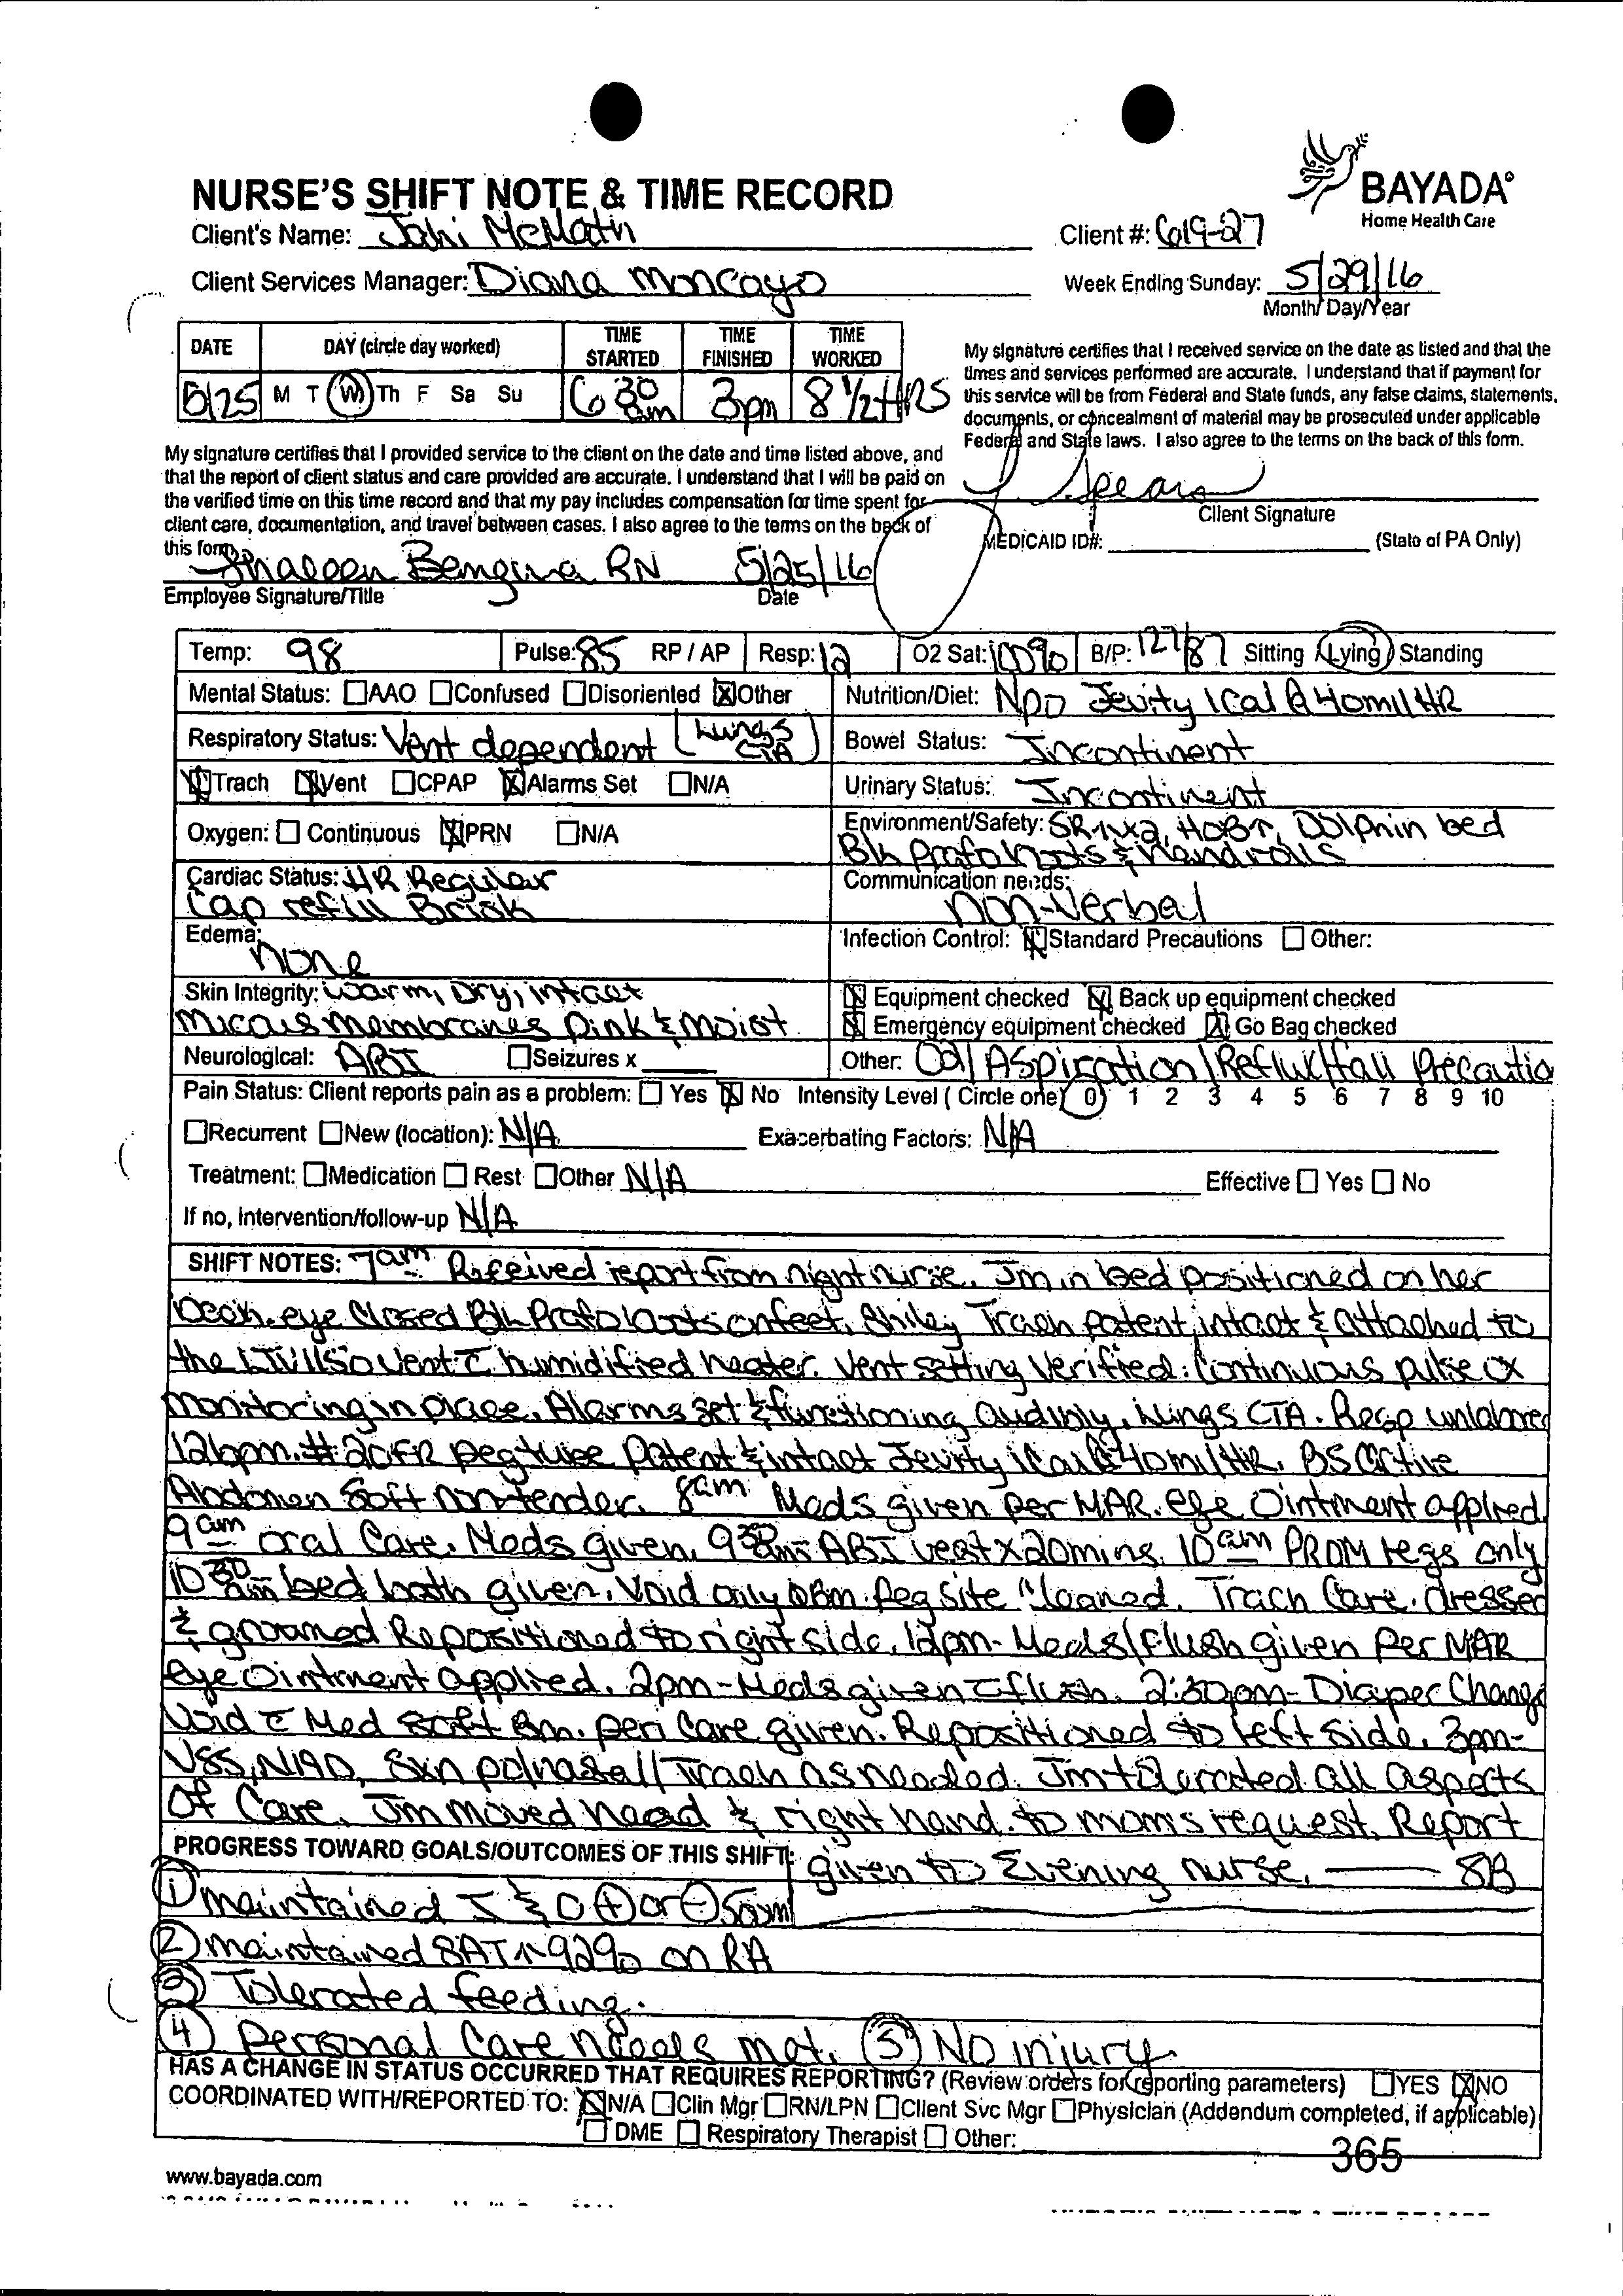 NURSE'S SHIFT NOTE & TIME RECORD
BAYADA®
Home Health Care
Client's Name: Jahi McMath
Client #: 619-27
Client Services Manager: Diana Moncayo
Week Ending Sunday: 5/29/16
Month/ Day/Year
DATE DAY (circle day worked) TIME STARTED TIME FINISHED TIME WORKED
5/25 M T W Th F Sa Su 6 30 am 3pm 8 1/2 HRS
My signature certifies that I received service on the date as listed and that the
times and services performed are accurate. I understand that if payment for
this service will be from Federal and State funds, any false claims, statements,
documents, or concealment of material may be prosecuted under applicable
Federal and State laws. I also agree to the terms on the back of this form.
My signature certifies that I provided service to the client on the date and time listed above, and
that the report of client status and care provided are accurate. I understand that I will be paid on
the verified time on this time record and that my pay includes compensation for time spent for
client care, documentation, and travel between cases. I also agree to the terms on the back of
this form.
Spears
Client Signature
MEDICAID ID#: (State of PA Only)
RN 5/25/16
Employee Signature/Title Date
Temp: 98 Pulse: 85 RP / AP Resp: 12 O2 Sat: 100% B/P: 127/87 Sitting Lying Standing
Mental Status: AAO Confused Disoriented Other
Nutrition/Diet: NPO Jevity 1Cal @ 40ml/HR
Respiratory Status: Vent dependent (Lungs CTA)
Bowel Status: Incontinent
Trach Vent CPAP Alarms Set N/A
Urinary Status: Incontinent
Oxygen: Continuous PRN N/A
Environment/Safety: SR↑x2, HOB↑, Dolphin bed
B/L Profo boots & handrolls
Cardiac Status: HR Regular
Cap refill Brisk
Communication needs:
non-verbal
Edema:
none
Infection Control: Standard Precautions Other:
Skin Integrity: warm, Dry, intact
Mucous membranes pink & moist
Equipment checked Back up equipment checked
Emergency equipment checked Go Bag checked
Neurological: ABI Seizures x
Other: Aspiration/Reflux/fall Precautio
Pain Status: Client reports pain as a problem: Yes No Intensity Level ( Circle one) 0 1 2 3 4 5 6 7 8 9 10
Recurrent New (location): N/A Exacerbating Factors: N/A
Treatment: Medication Rest Other N/A Effective Yes No
If no, intervention/follow-up N/A
SHIFT NOTES: 7am Received report from night nurse. Jm in bed positioned on her
back. eye closed B/L Profo boots on feet. Shiley Trach patent, intact & attached to
the LTV1150 vent c̄ humidified heater. Vent setting verified. Continuous pulse ox
monitoring in place. Alarms set & functioning audibly. Lungs CTA. Resp unlabored
12bpm. #20FR peg tube Patent & intact Jevity 1Cal @ 40ml/HR. BS active
Abdomen soft non-tender. 8am Meds given per MAR. eye Ointment applied.
9am oral Care. Meds given. 9 30am ABI vest x 20mins. 10am PROM legs only
10 30 am bed bath given. Void only 0 Bm. Peg site cleaned. Trach Care. dressed
& groomed Repositioned to right side. 12pm- Meds/flush given Per MAR
eye Ointment applied. 2pm-Meds given c̄ flush. 2:30pm- Diaper Change
Void c̄ Med soft Bm. peri Care given. Repositioned to left Side. 3pm-
VSS, NAD, Sxn po/nasal/Trach as needed. Jm tolerated all aspects
Of Care. Jm moved head & right hand to mom's request. Report
PROGRESS TOWARD GOALS/OUTCOMES OF THIS SHIFT: given to Evening nurse. SB
① maintained I & O ⊕ or ⊖
② maintained SAT ↑ 92% on RA
③ Tolerated feeding.
④ Personal Care needs met. ⑤ NO injury.
HAS A CHANGE IN STATUS OCCURRED THAT REQUIRES REPORTING? (Review orders for reporting parameters) YES NO
COORDINATED WITH/REPORTED TO: N/A Clin Mgr RN/LPN Client Svc Mgr Physician (Addendum completed, if applicable)
DME Respiratory Therapist Other:
365
www.bayada.com